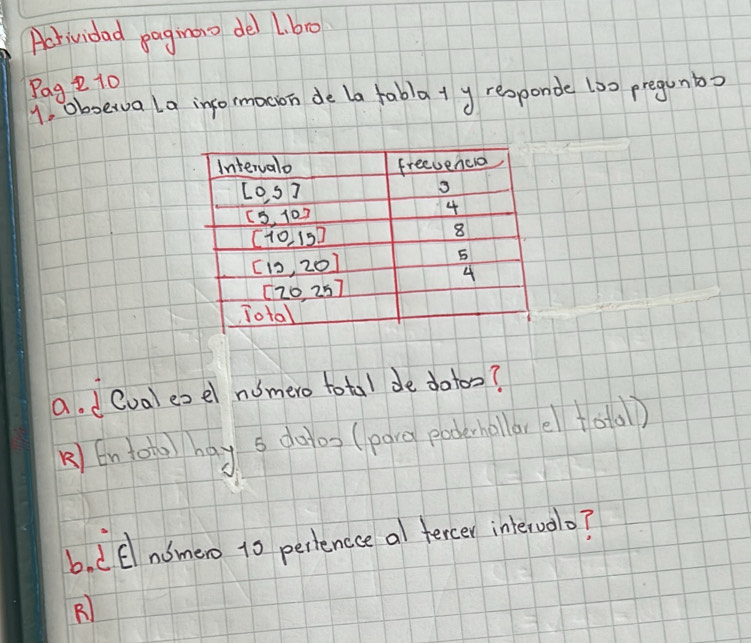 Actividad paginas del Libro
Pag 210
1. Observa La informacion de la tabla 1 y responde las preguntas
Intervalo frecuencia
[0,5] 3
[5,10] 4
[10,15] 8
[15,20] 5
[20,25] 4
Total
a. ¿Cual es el número total de datos?
R) En total hay 5 datos (para poder hallar el total)
b. ¿El número 15 pertenece al tercer intervalo?
R)